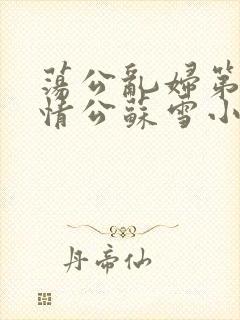 荡公乱婦第
情公蘇雪小
丹帝仙